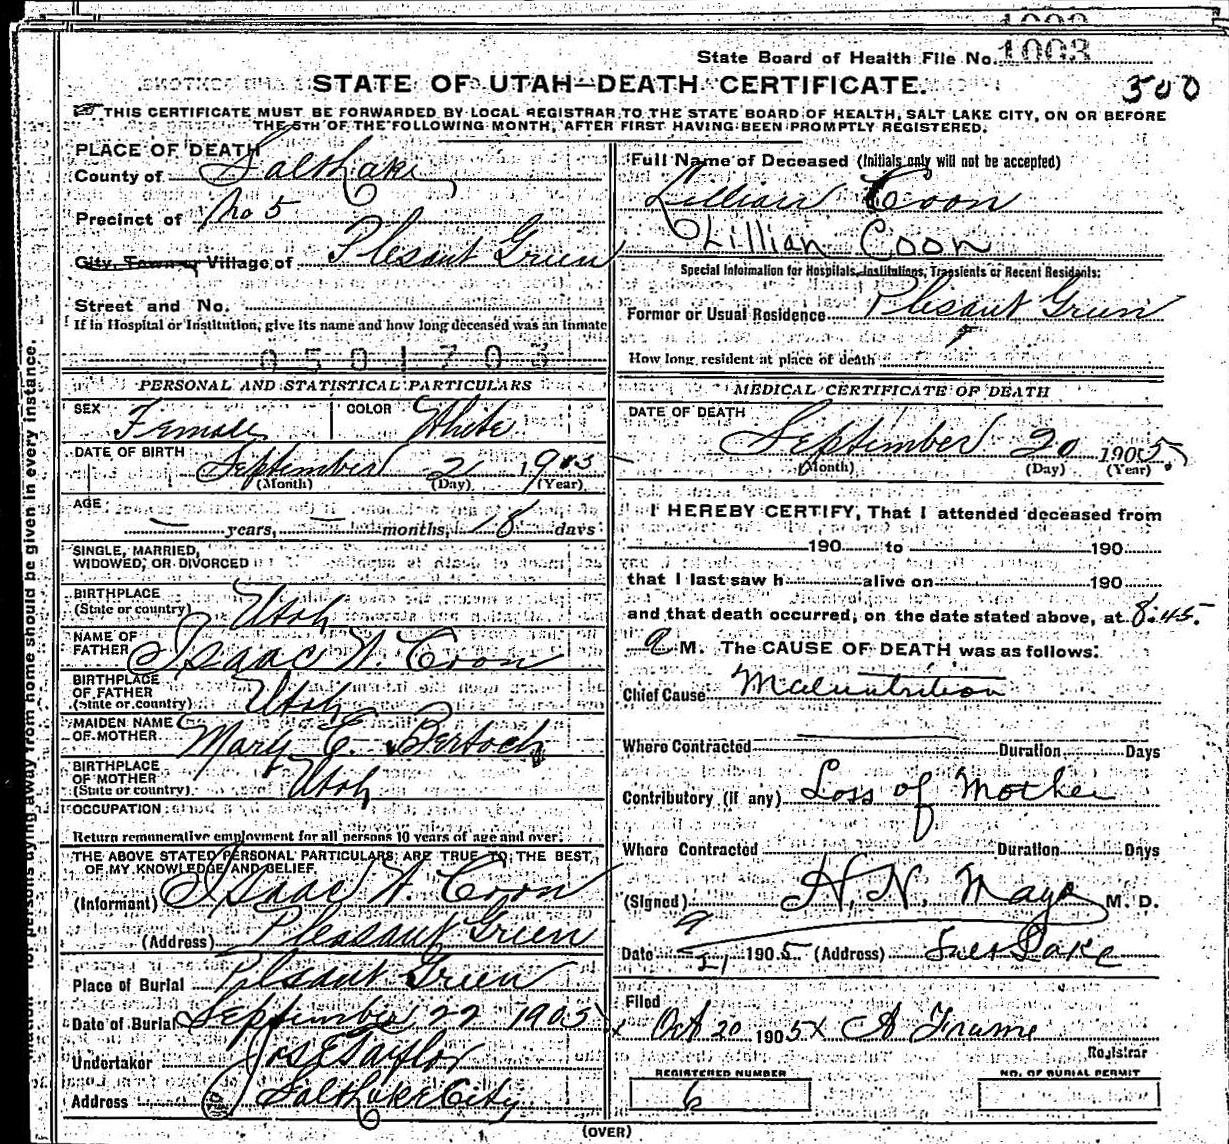 State Board of Health File No. 1003
500
STATE OF UTAH—DEATH CERTIFICATE.
THIS CERTIFICATE MUST BE FORWARDED BY LOCAL REGISTRAR TO THE STATE BOARD OF HEALTH, SALT LAKE CITY, ON OR BEFORE
THE 5TH OF THE FOLLOWING MONTH, AFTER FIRST HAVING BEEN PROMPTLY REGISTERED.
PLACE OF DEATH
County of Salt Lake
Precinct of No 5
City, Town or Village of Plesant Green
Street and No.
If in Hospital or Institution, give its name and how long deceased was an inmate
0501703
PERSONAL AND STATISTICAL PARTICULARS
SEX Female COLOR White
DATE OF BIRTH September 2 1903
(Month) (Day) (Year)
AGE
— years, — months, 18 days
SINGLE, MARRIED,
WIDOWED, OR DIVORCED
BIRTHPLACE
(State or country) Utah
NAME OF
FATHER Isaac W. Coon
BIRTHPLACE
OF FATHER
(State or country) Utah
MAIDEN NAME
OF MOTHER Mary E. Bertoch
BIRTHPLACE
OF MOTHER
(State or country) Utah
OCCUPATION
Return remunerative employment for all persons 10 years of age and over.
THE ABOVE STATED PERSONAL PARTICULARS ARE TRUE TO THE BEST
OF MY KNOWLEDGE AND BELIEF
(Informant) Isaac W. Coon
(Address) Pleasant Green
Place of Burial Plesant Green
Date of Burial September 22 1905
Undertaker Jos E Taylor
Address Salt Lake City
Full Name of Deceased (Initials only will not be accepted)
Lillian Coon
Lillian Coon
Special Information for Hospitals, Institutions, Transients or Recent Residents:
Former or Usual Residence Plesant Green
How long resident at place of death
MEDICAL CERTIFICATE OF DEATH
DATE OF DEATH
September 20 1905
(Month) (Day) (Year)
I HEREBY CERTIFY, That I attended deceased from
190 to 190
that I last saw h alive on 190
and that death occurred, on the date stated above, at 8:45.
a M. The CAUSE OF DEATH was as follows:
Chief Cause Malnutrition
Where Contracted Duration Days
Contributory (if any) Loss of Mother
Where Contracted Duration Days
(Signed) H. N. Mayo M. D.
Date 9/21 1905 (Address) Salt Lake
Filed
x Oct 20 1905 x A Frame
Registrar
REGISTERED NUMBER
6
NO. OF BURIAL PERMIT
(OVER)
for persons dying away from home should be given in every instance.